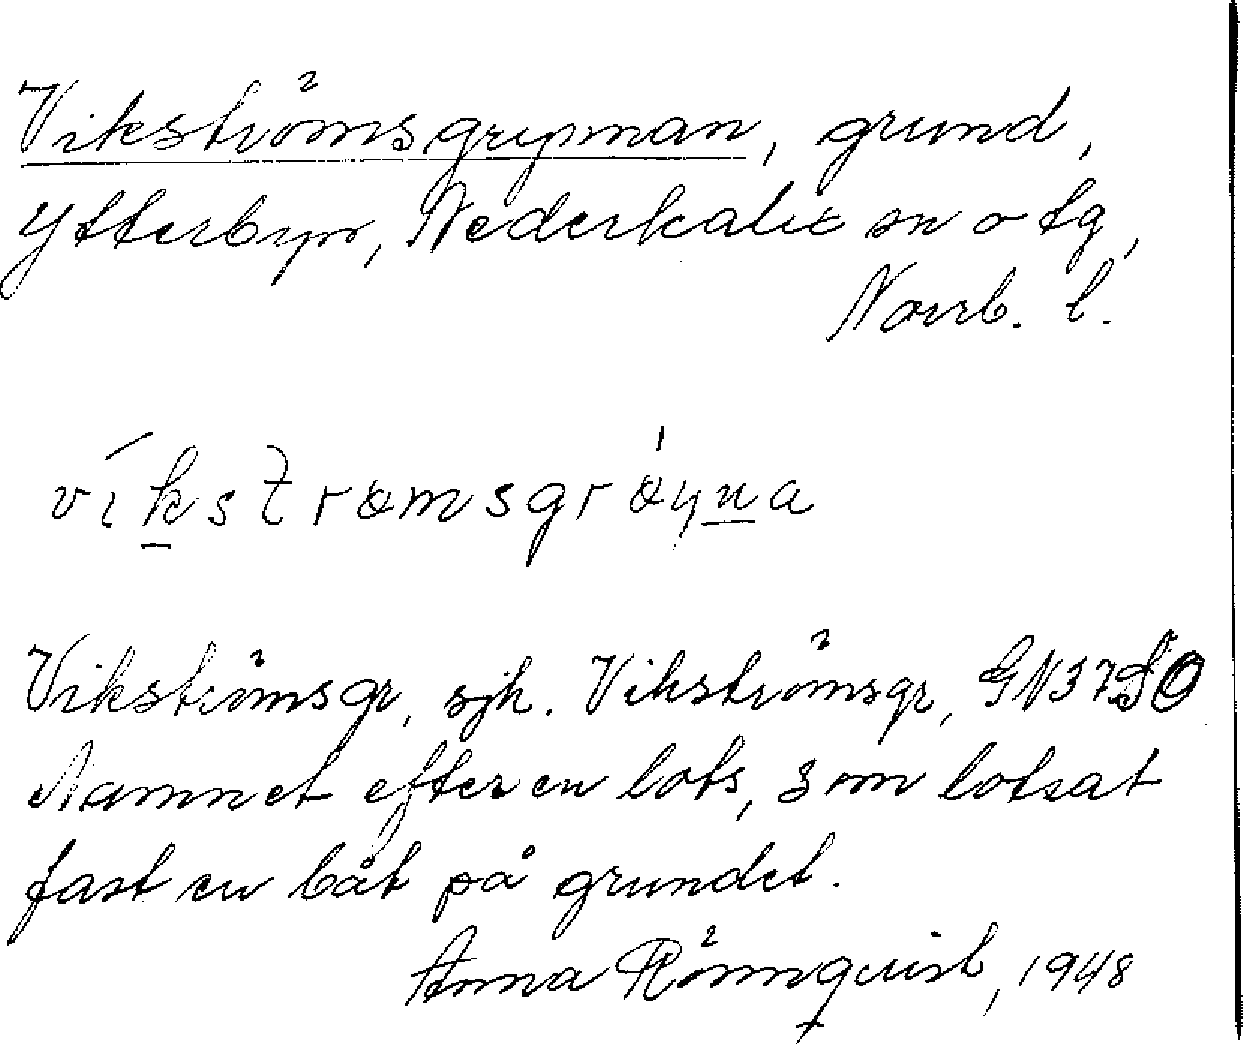 Vikströmsgrynnan, grund,
Ytterbyn, Nederkalix sn o tg,
Norrb. l.
víkstrømsgrǿyna
Vikströmsgr, sjk. Vikströmsgr, GN37SO
Namnet efter en lots, som lotsat
fast en båt på grundet.
Anna Rönnqvist, 1948